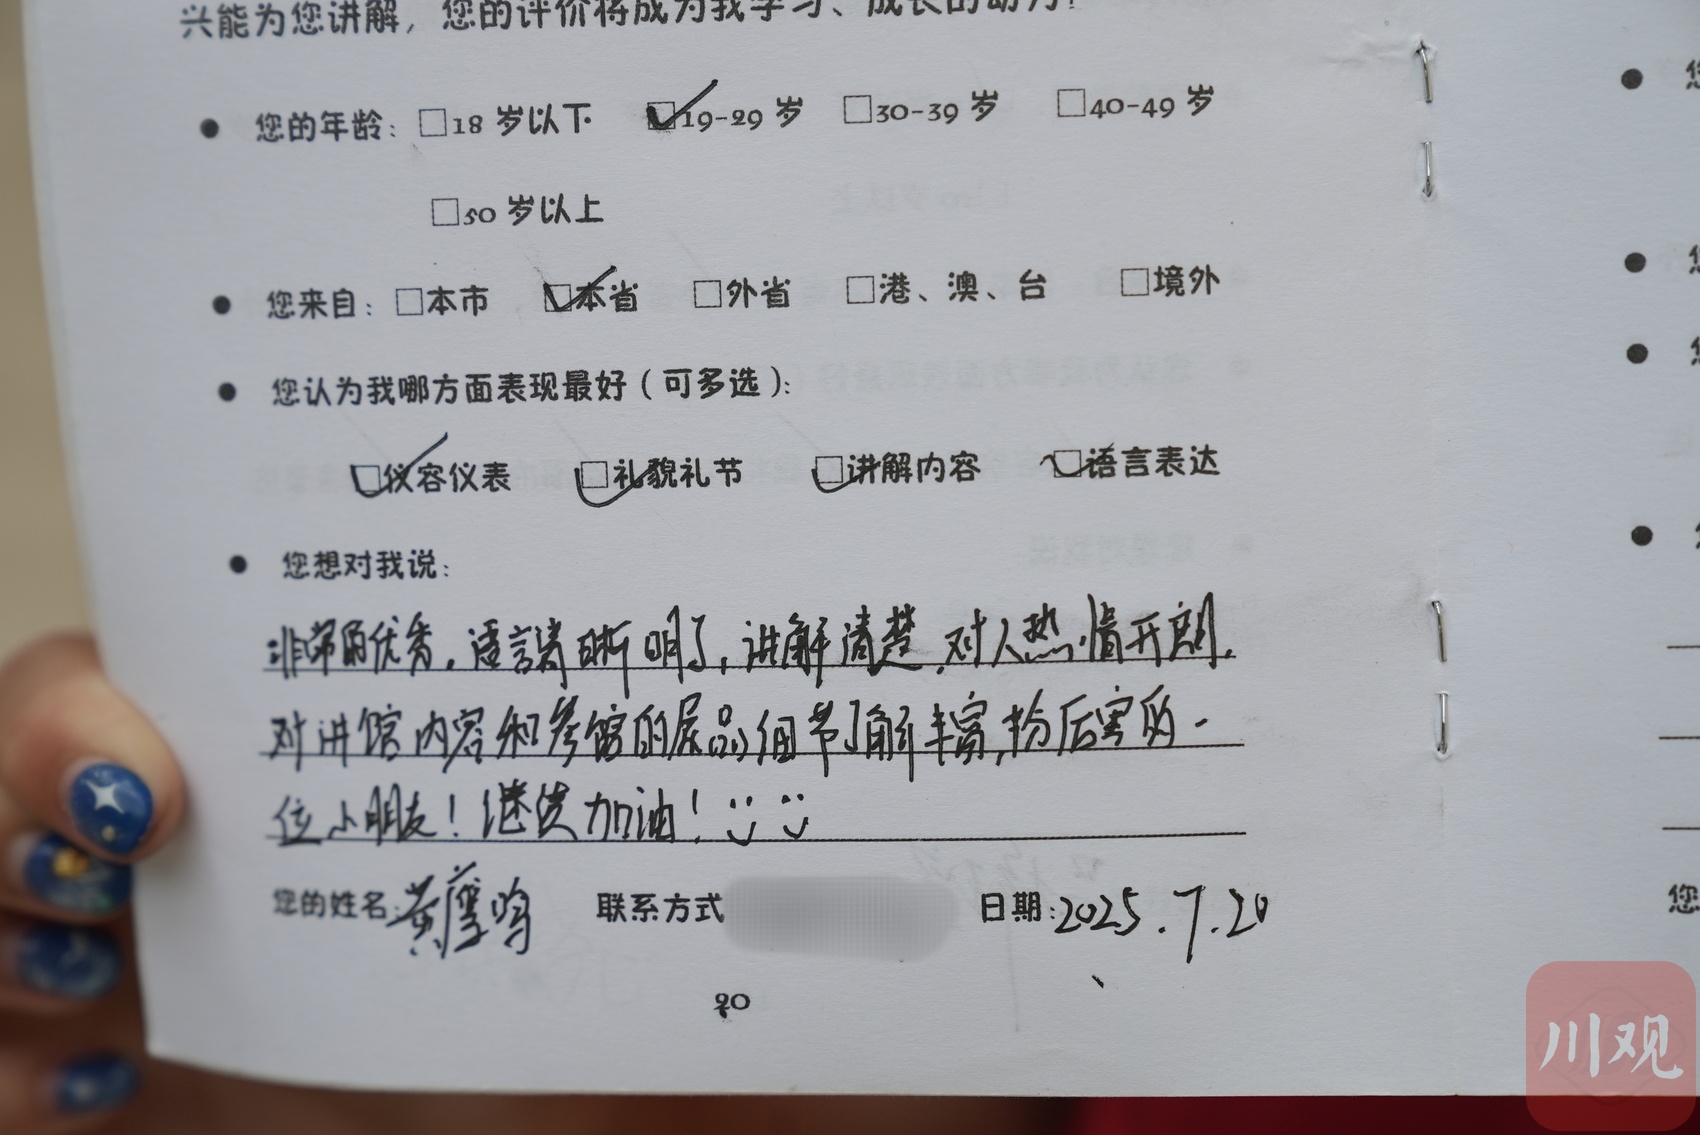 兴能为您讲解，您的评价将成为我学习、成长的动力！
● 您的年龄：□18 岁以下 ☑19-29 岁 □30-39 岁 □40-49 岁
□50 岁以上
● 您来自：□本市 ☑本省 □外省 □港、澳、台 □境外
● 您认为我哪方面表现最好（可多选）：
☑仪容仪表 ☑礼貌礼节 ☑讲解内容 ☑语言表达
● 您想对我说：
非常的优秀，语言清晰明了，讲解清楚，对人热情开朗，
对讲馆内容和参馆的展品细节了解丰富，厉害的一
位小朋友！继续加油！
您的姓名：黄 鸣 联系方式 日期：2025.7.20
20
川观